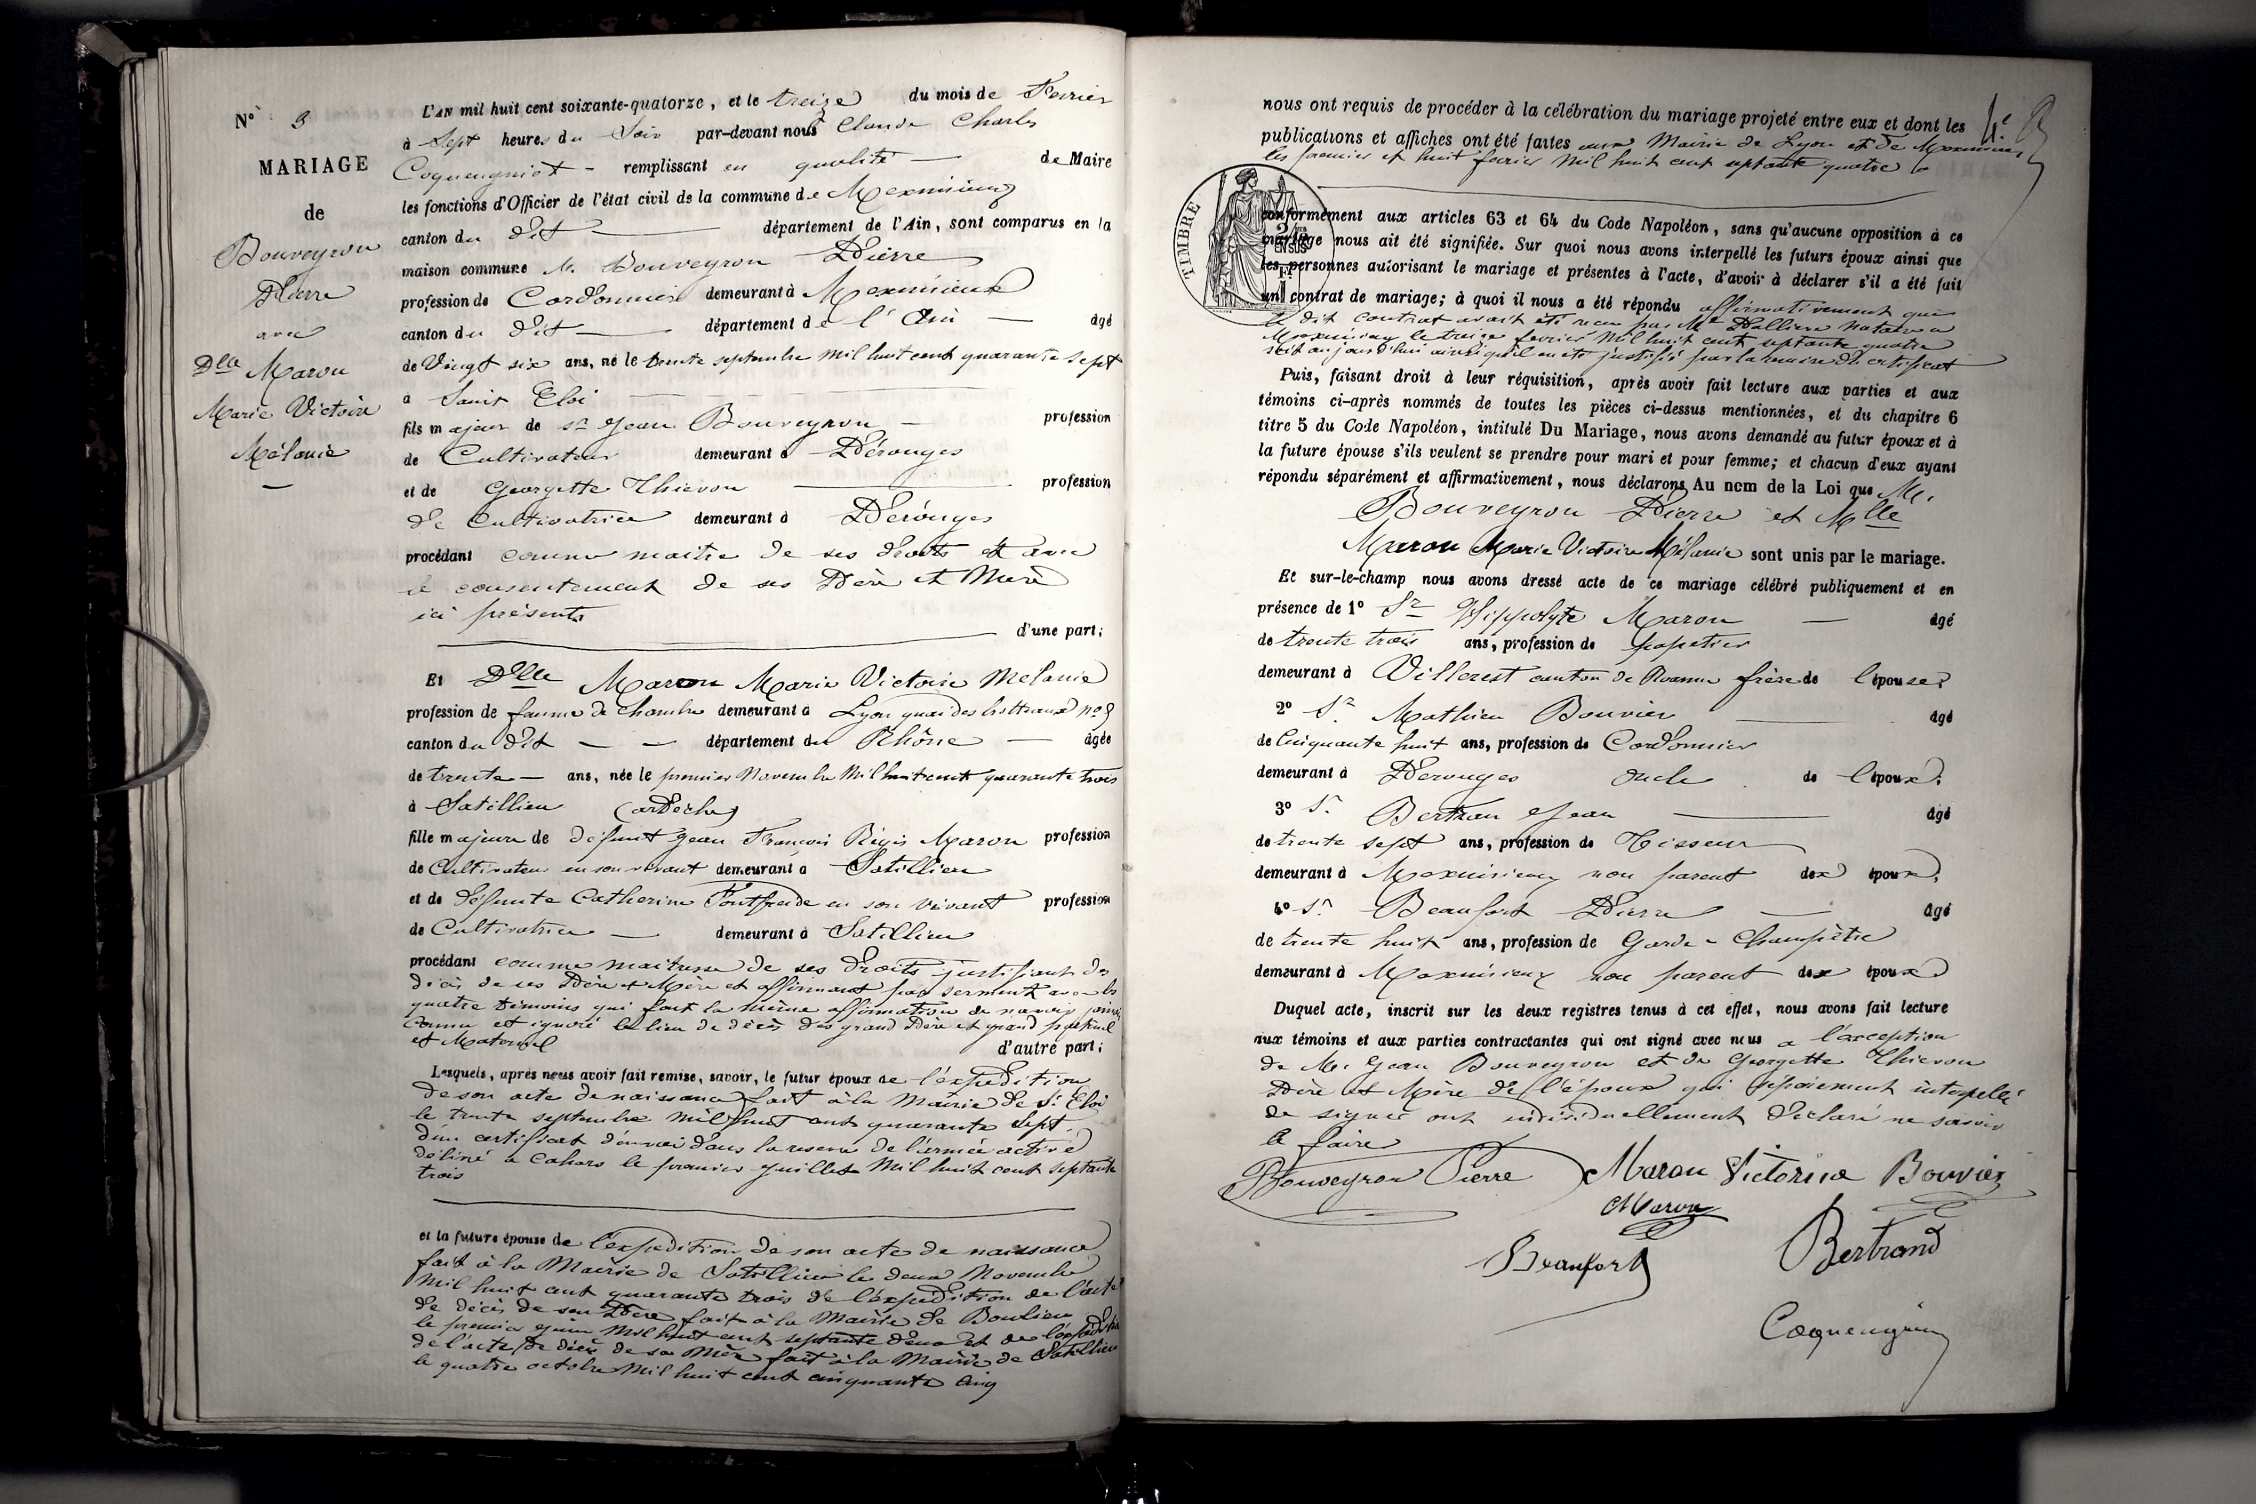 N° 3
MARIAGE
de
Bouveyron
Pierre
avec
Dlle Maron
Marie Victoire
Mélanie
L'AN mil huit cent soixante-quatorze, et le treize du mois de Fevrier
à Sept heures du Soir par-devant nous Claude Charles
Coqueugniot - remplissant en qualité de Maire
les fonctions d'Officier de l'état civil de la commune de Meximieux
canton du dit département de l'Ain, sont comparus en la
maison commune M. Bouveyron Pierre
profession de Cordonnier demeurant à Meximieux
canton du dit département de l'Ain âgé
de Vingt six ans, né le trente septembre mil huit cent quarante sept
à Saint Eloi
fils majeur de Sr Jean Bouveyron profession
de Cultivateur demeurant à Pérouges
et de Georgette Thievon profession
de Cultivatrice demeurant à Pérouges
procédant comme maitre de ses droits et avec
le consentement de ses Père et Mère
ici présents
d'une part;
Et Dlle Maron Marie Victoire Mélanie
profession de femme de chambre demeurant à Lyon quai des Brotteaux no 9
canton du dit département du Rhône âgée
de trente ans, née le premier Novembre Mil huit cent quarante trois
à Satillieu (ardèche)
fille majeure de défunt Jean François Régis Maron profession
de Cultivateur en son vivant demeurant à Satillieu
et de défunte Catherine en son vivant profession
de Cultivatrice demeurant à Satillieu
procédant comme maitresse de ses droits justifiant du
décès de ses Père et Mère et affirmant par serment avec les
quatre témoins qui font la même affirmation de n'avoir jamais
connu et ignoré le lieu de décès des grand Père et grand
et Maternel
d'autre part;
Lesquels, après nous avoir fait remise, savoir, le futur époux de l'expédition
de son acte de naissance fait à la Mairie de St Eloi
le trente septembre mil huit cent quarante sept
d'un certificat d'envoi dans la reserve de l'armée active
délivré à Cahors le premier Juillet Mil huit cent septante
trois
et la future épouse de l'expédition de son acte de naissance
fait à la Mairie de Satillieu le deux Novembre
Mil huit cent quarante trois de l'expédition de l'acte
de décès de son Père fait à la Mairie de Boulieu
le premier Juin Mil huit cent septante deux et de l'expédition
de l'acte de décès de sa Mère fait à la Mairie de Satillieu
le quatre octobre Mil huit cent cinquante cinq
4e
nous ont requis de procéder à la célébration du mariage projeté entre eux et dont les
publications et affiches ont été faites aux Mairie de Lyon et de Meximieux
les premier et huit fevrier Mil huit cent septante quatre
TIMBRE
conformément aux articles 63 et 64 du Code Napoléon, sans qu'aucune opposition à ce
mariage nous ait été signifiée. Sur quoi nous avons interpellé les futurs époux ainsi que
les personnes autorisant le mariage et présentes à l'acte, d'avoir à déclarer s'il a été fait
un contrat de mariage; à quoi il nous a été répondu affirmativement que
le dit contrat avait été recu par Me notaire a
Meximieux le treize fevrier Mil huit cent septante quatre
soit aujourd'hui ainsi qu'il en été justifié par la remise du certificat
Puis, faisant droit à leur réquisition, après avoir fait lecture aux parties et aux
témoins ci-après nommés de toutes les pièces ci-dessus mentionnées, et du chapitre 6
titre 5 du Code Napoléon, intitulé Du Mariage, nous avons demandé au futur époux et à
la future épouse s'ils veulent se prendre pour mari et pour femme; et chacun d'eux ayant
répondu séparément et affirmativement, nous déclarons Au nom de la Loi que M.
Bouveyron Pierre et Mlle
Maron Marie Victoire Mélanie sont unis par le mariage.
Et sur-le-champ nous avons dressé acte de ce mariage célébré publiquement et en
présence de 1° Sr Hippolyte Maron âgé
de trente trois ans, profession de papetier
demeurant à Villerest canton de Roanne frère de l'épouse;
2° Sr Mathieu Bouvier âgé
de Cinquante huit ans, profession de Cordonnier
demeurant à Perouges oncle de l'époux;
3° Sr Bertran Jean âgé
de trente sept ans, profession de Tisseur
demeurant à Meximieux non parent des époux;
4° Sr Beaufort Pierre âgé
de trente huit ans, profession de Garde-Champêtre
demeurant à Meximieux non parent des époux
Duquel acte, inscrit sur les deux registres tenus à cet effet, nous avons fait lecture
aux témoins et aux parties contractantes qui ont signé avec nous a l'exception
de M. Jean Bouveyron et de Georgette Thievon
Père et Mère de l'époux qui séparément interpellé
de signer ont individuellement déclaré ne savoir
le faire
Bouveyron Pierre Maron Victorine Bouvier
Maron
Beaufort Bertrand
Coqueugniot